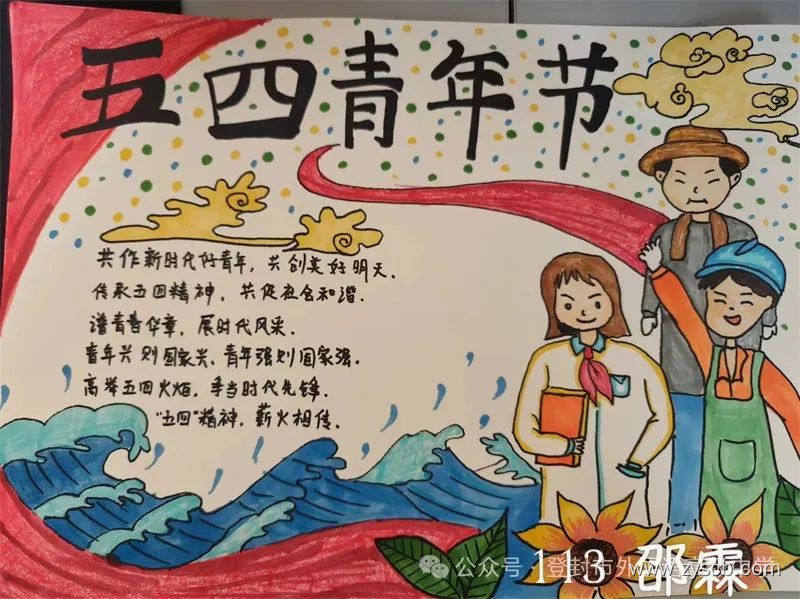 五四青年节
共作新时代好青年，共创美好明天．
传承五四精神，共促社会和谐．
谱青春华章，展时代风采．
青年兴则国家兴，青年强则国家强．
高举五四火炬，争当时代先锋．
"五四"精神，薪火相传．
113 邵霖
公众号
登封市外
学
www.zyscb.com